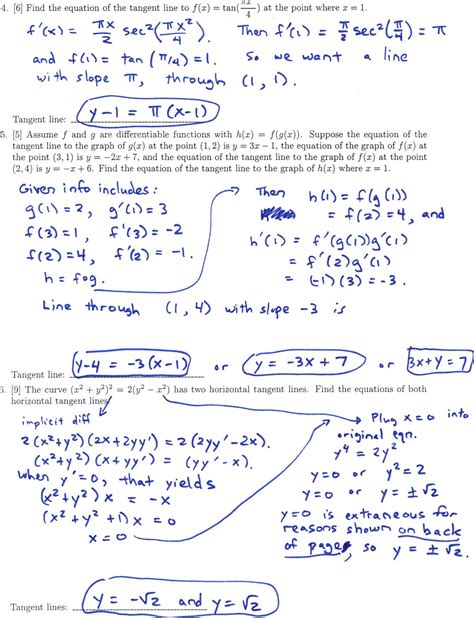 4. [6] Find the equation of the tangent line to f(x) = tan(πx²/4) at the point where x = 1.
f'(x) = πx/2 sec²(πx²/4). Then f'(1) = π/2 sec²(π/4) = π
and f(1) = tan(π/4) = 1. So we want a line
with slope π, through (1, 1).
Tangent line: y-1 = π(x-1)
5. [5] Assume f and g are differentiable functions with h(x) = f(g(x)). Suppose the equation of the
tangent line to the graph of g(x) at the point (1, 2) is y = 3x − 1, the equation of the graph of f(x) at
the point (3, 1) is y = −2x + 7, and the equation of the tangent line to the graph of f(x) at the point
(2, 4) is y = −x + 6. Find the equation of the tangent line to the graph of h(x) where x = 1.
Given info includes:
g(1) = 2, g'(1) = 3
f(3) = 1, f'(3) = -2
f(2) = 4, f'(2) = -1.
h = f∘g.
Then h(1) = f(g(1))
= f(2) = 4, and
h'(1) = f'(g(1))g'(1)
= f'(2)g'(1)
= (-1)(3) = -3.
Line through (1, 4) with slope -3 is
Tangent line: y-4 = -3(x-1) or y = -3x + 7 or 3x+y = 7
6. [9] The curve (x² + y²)² = 2(y² − x²) has two horizontal tangent lines. Find the equations of both
horizontal tangent lines.
implicit diff
2(x²+y²)(2x+2yy') = 2(2yy'-2x).
(x²+y²)(x+yy') = (yy'-x).
When y'=0, that yields
(x²+y²)x = -x
(x²+y²+1)x = 0
x = 0
Plug x=0 into
original eqn.
y⁴ = 2y²
y=0 or y²=2
y=0 or y=±√2
y=0 is extraneous for
reasons shown on back
of page, so y = ±√2.
Tangent lines: y = -√2 and y = √2